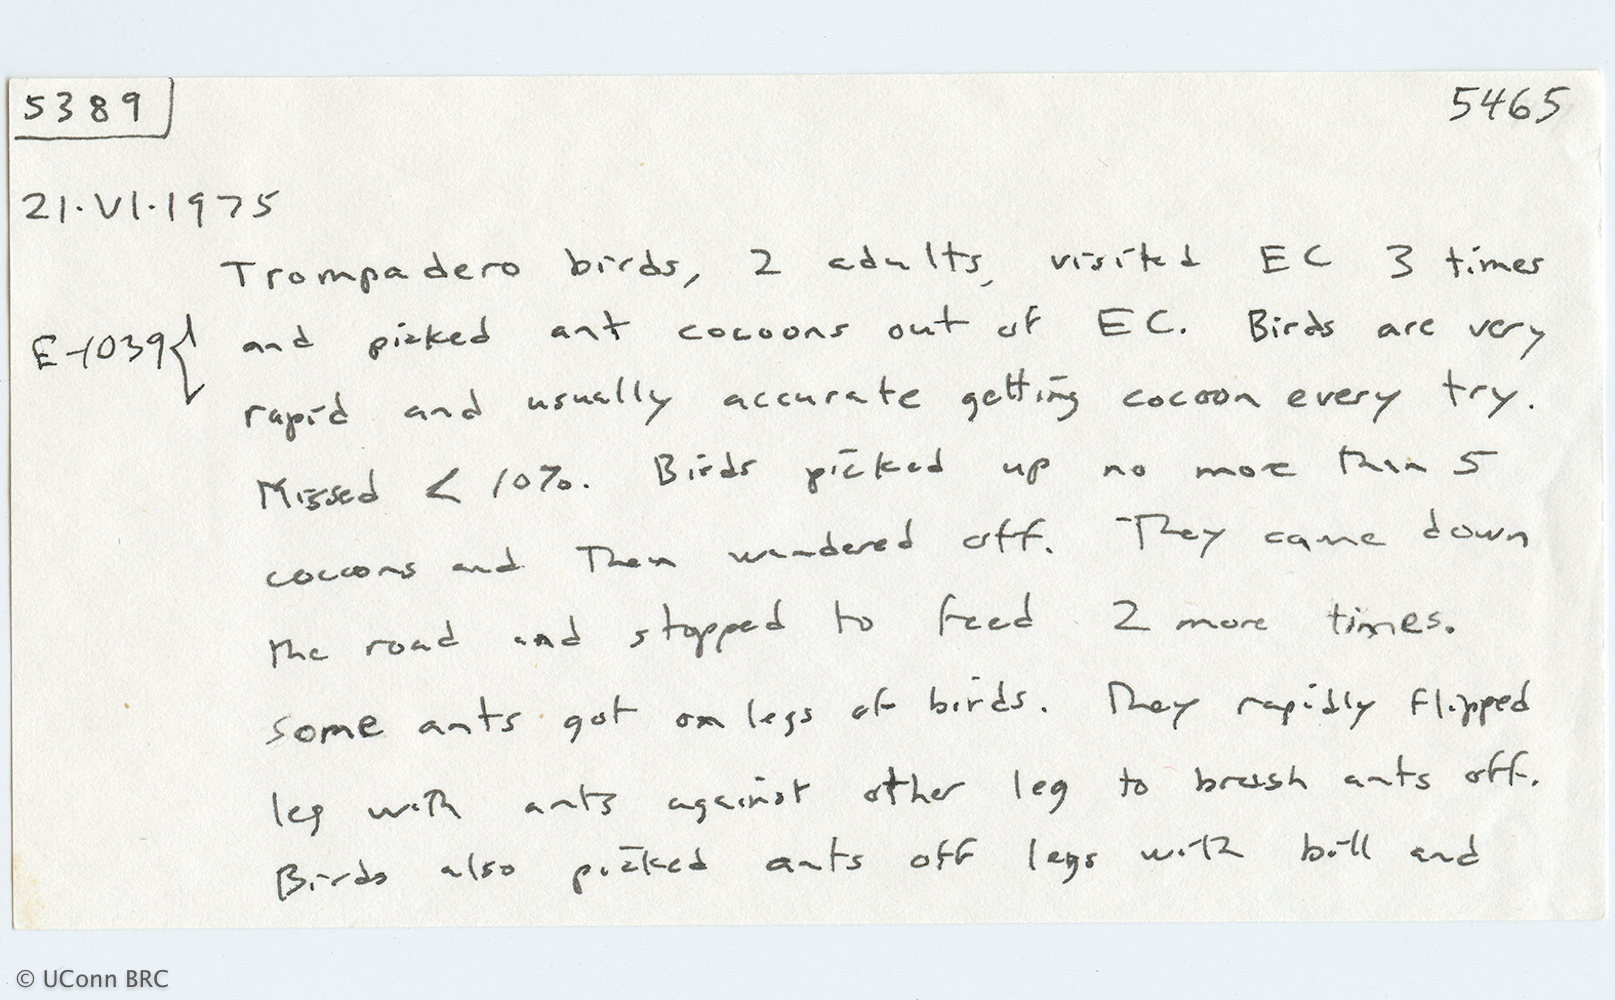 5389
5465
21·VI·1975
Trompadero birds, 2 adults, visited EC 3 times
E-1039{ and picked ant cocoons out of EC. Birds are very
rapid and usually accurate getting cocoon every try.
Missed < 10%. Birds picked up no more than 5
cocoons and then wandered off. They came down
the road and stopped to feed 2 more times.
Some ants got on legs of birds. They rapidly flipped
leg with ants against other leg to brush ants off.
Birds also picked ants off legs with bill and
© UConn BRC